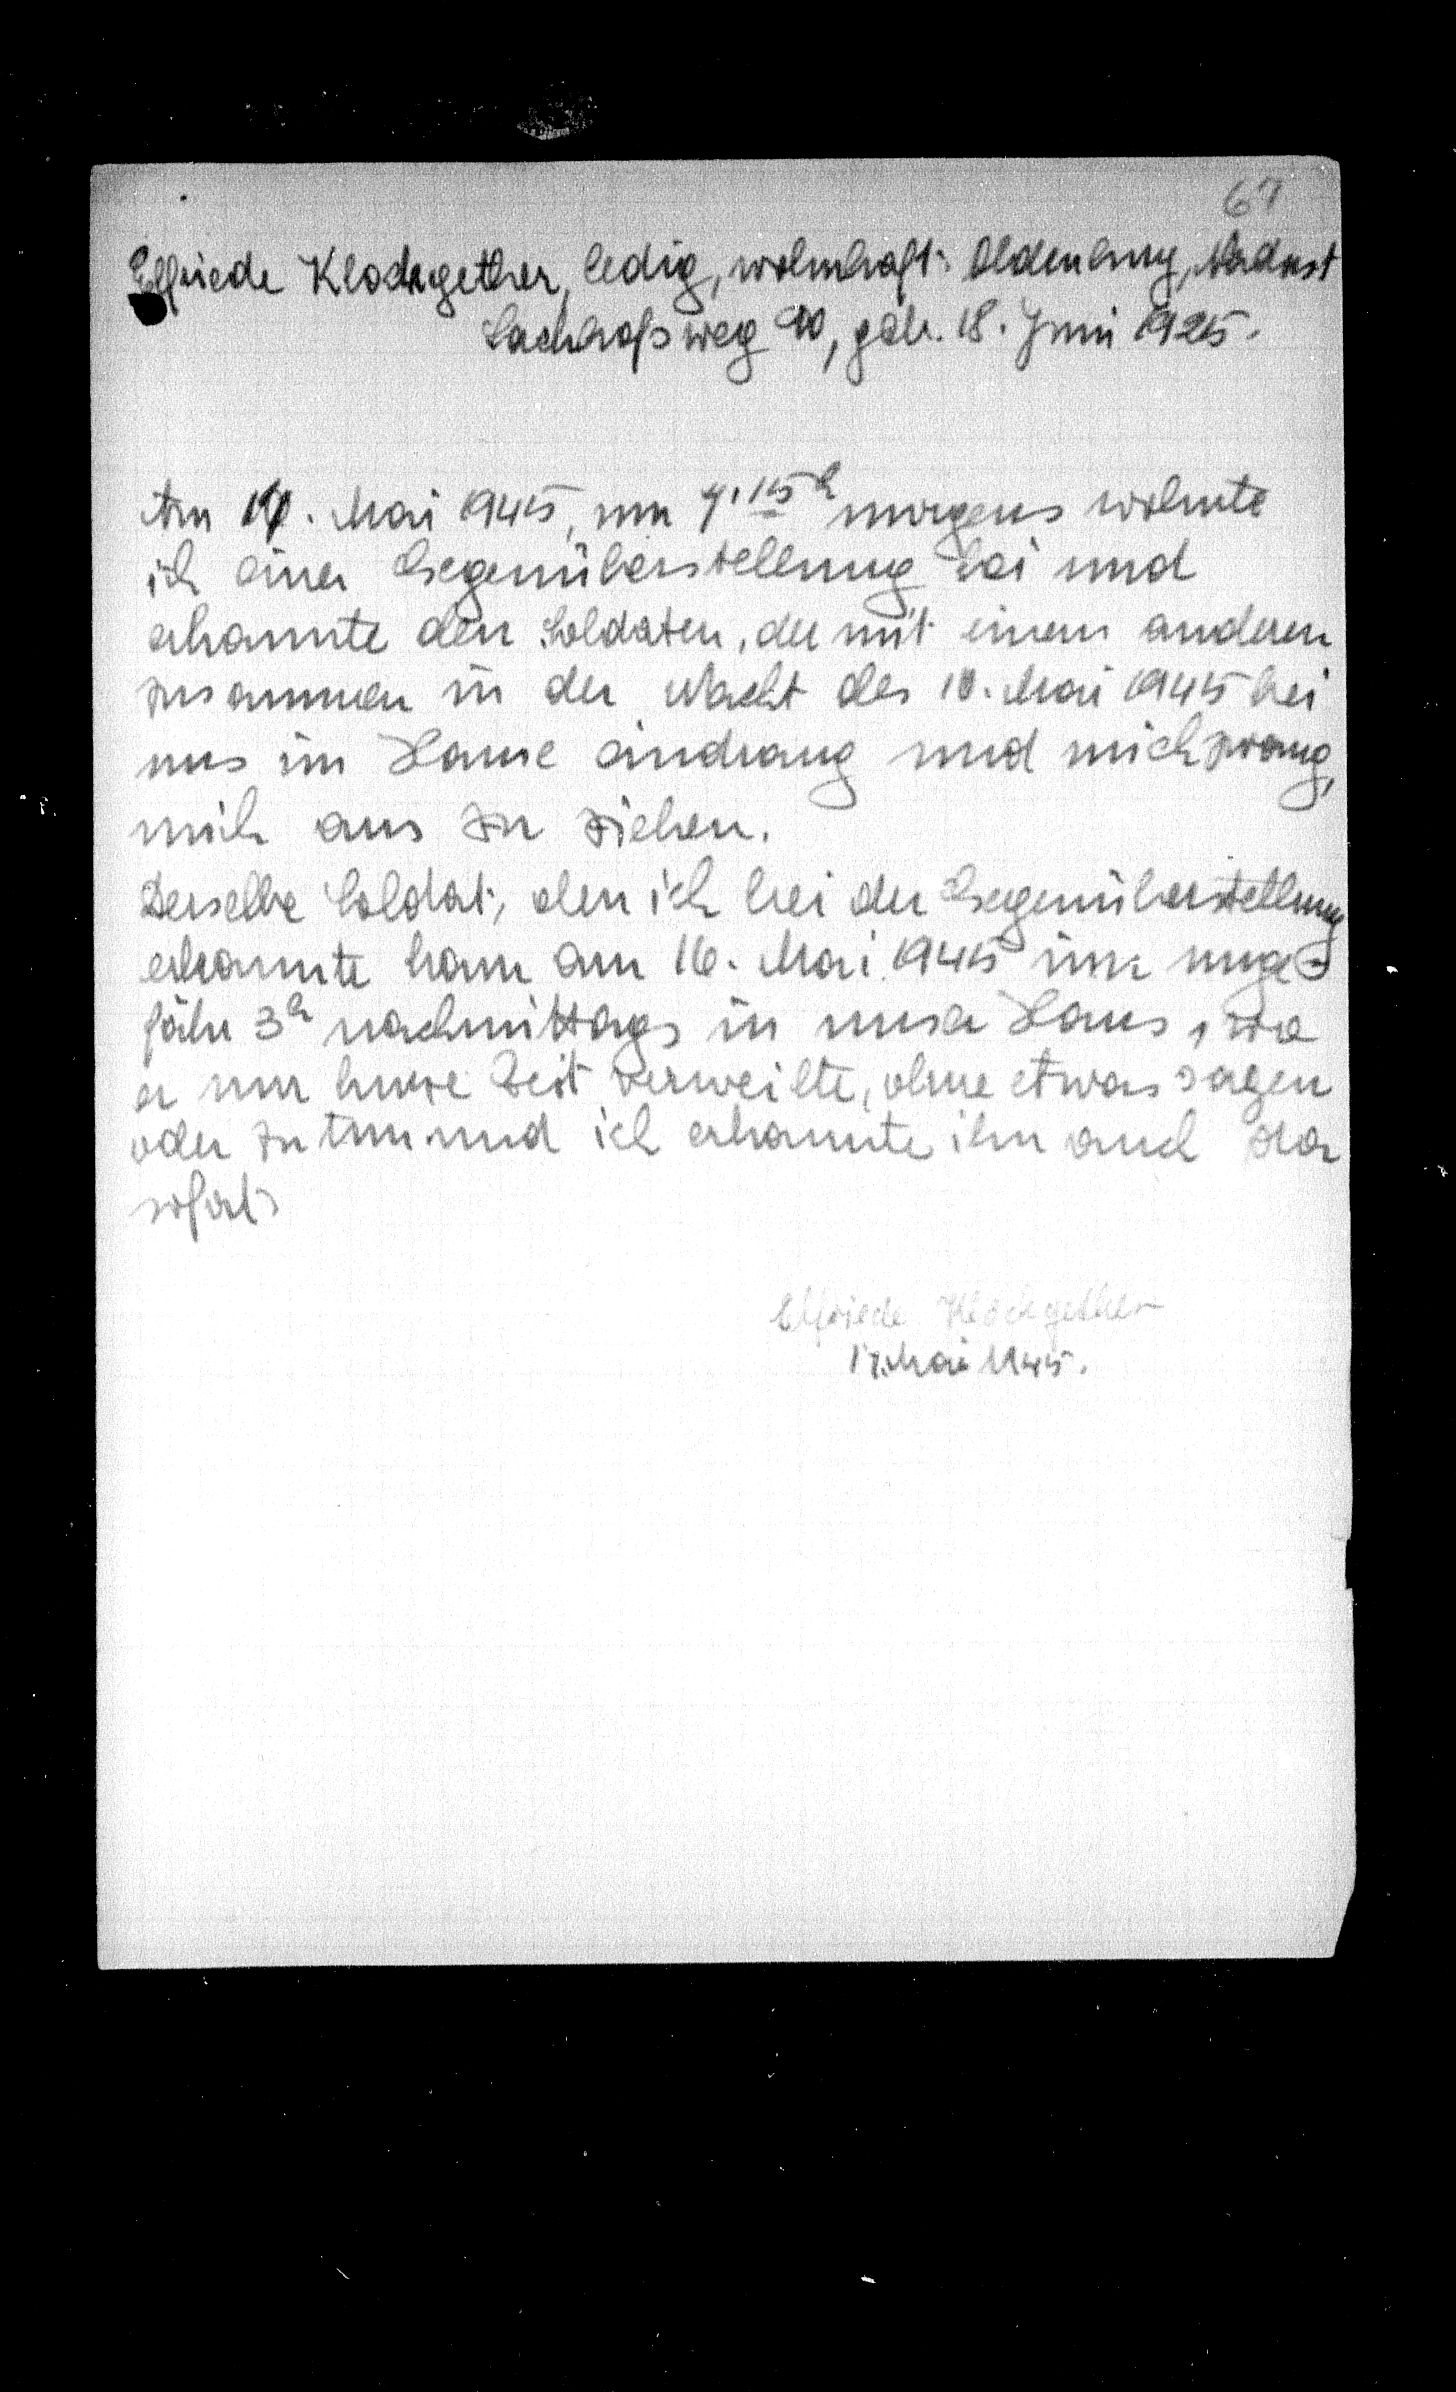 67
Elfriede Klockgether, ledig, wohnhaft: Oldenburg, Nadorst
weg 90, geb. 18. Juni 1925.
Am 17. Mai 1945, um 7,15 h morgens wohnte
ich einer Gegenüberstellung bei und
erkannte den Soldaten, der mit einem anderen
zusammen in der Nacht des 10. Mai 1945 bei
uns im Hause eindrang und mich zwang,
mich aus zu ziehen.
Derselbe Soldat, den ich bei der Gegenüberstellung
erkannte kam am 16. Mai 1945 um unge-
fähr 3h nachmittags in unser Haus, wo
er nur kurze Zeit verweilte, ohne etwas sagen
oder zu tun und ich erkannte ihn auch da
sofort.
Elfriede Klockgether
17. Mai 1945.